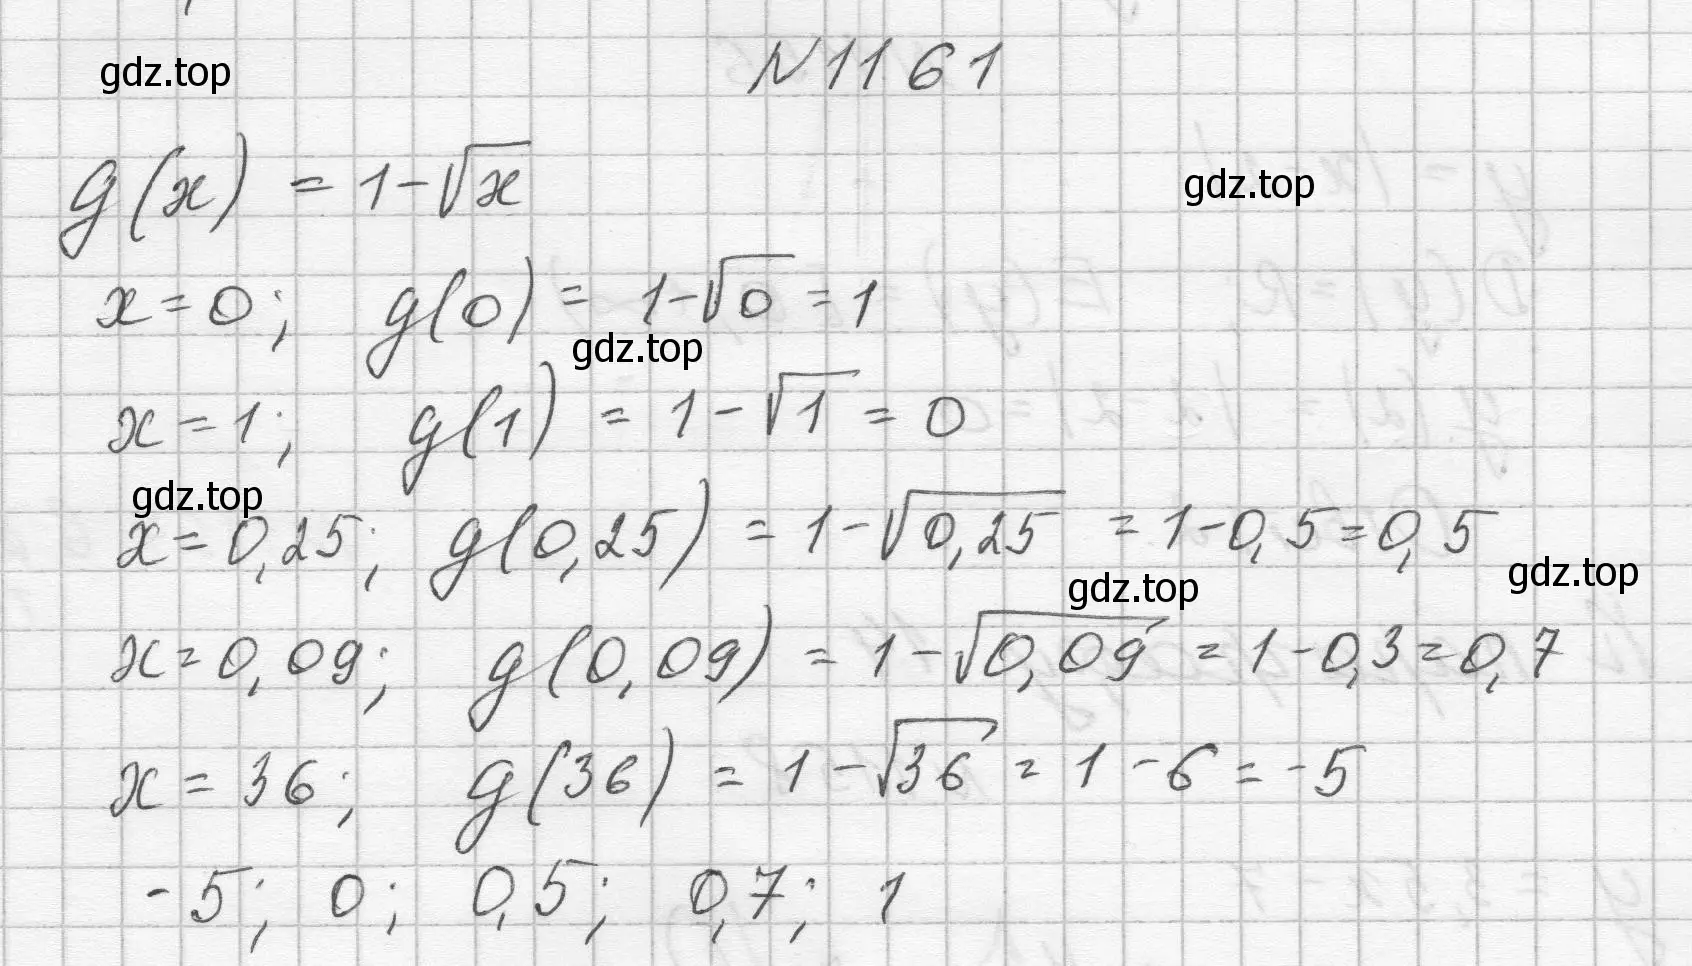 №1161
gdz.top
g(x) = 1-√x
gdz.top
x=0; g(0) = 1-√0 = 1
gdz.top
x=1; g(1) = 1-√1 = 0
gdz.top
x=0,25; g(0,25) = 1-√0,25 = 1-0,5=0,5
gdz.top
gdz.top
x=0,09; g(0,09) = 1-√0,09 = 1-0,3=0,7
x=36; g(36) = 1-√36 = 1-6=-5
-5; 0; 0,5; 0,7; 1